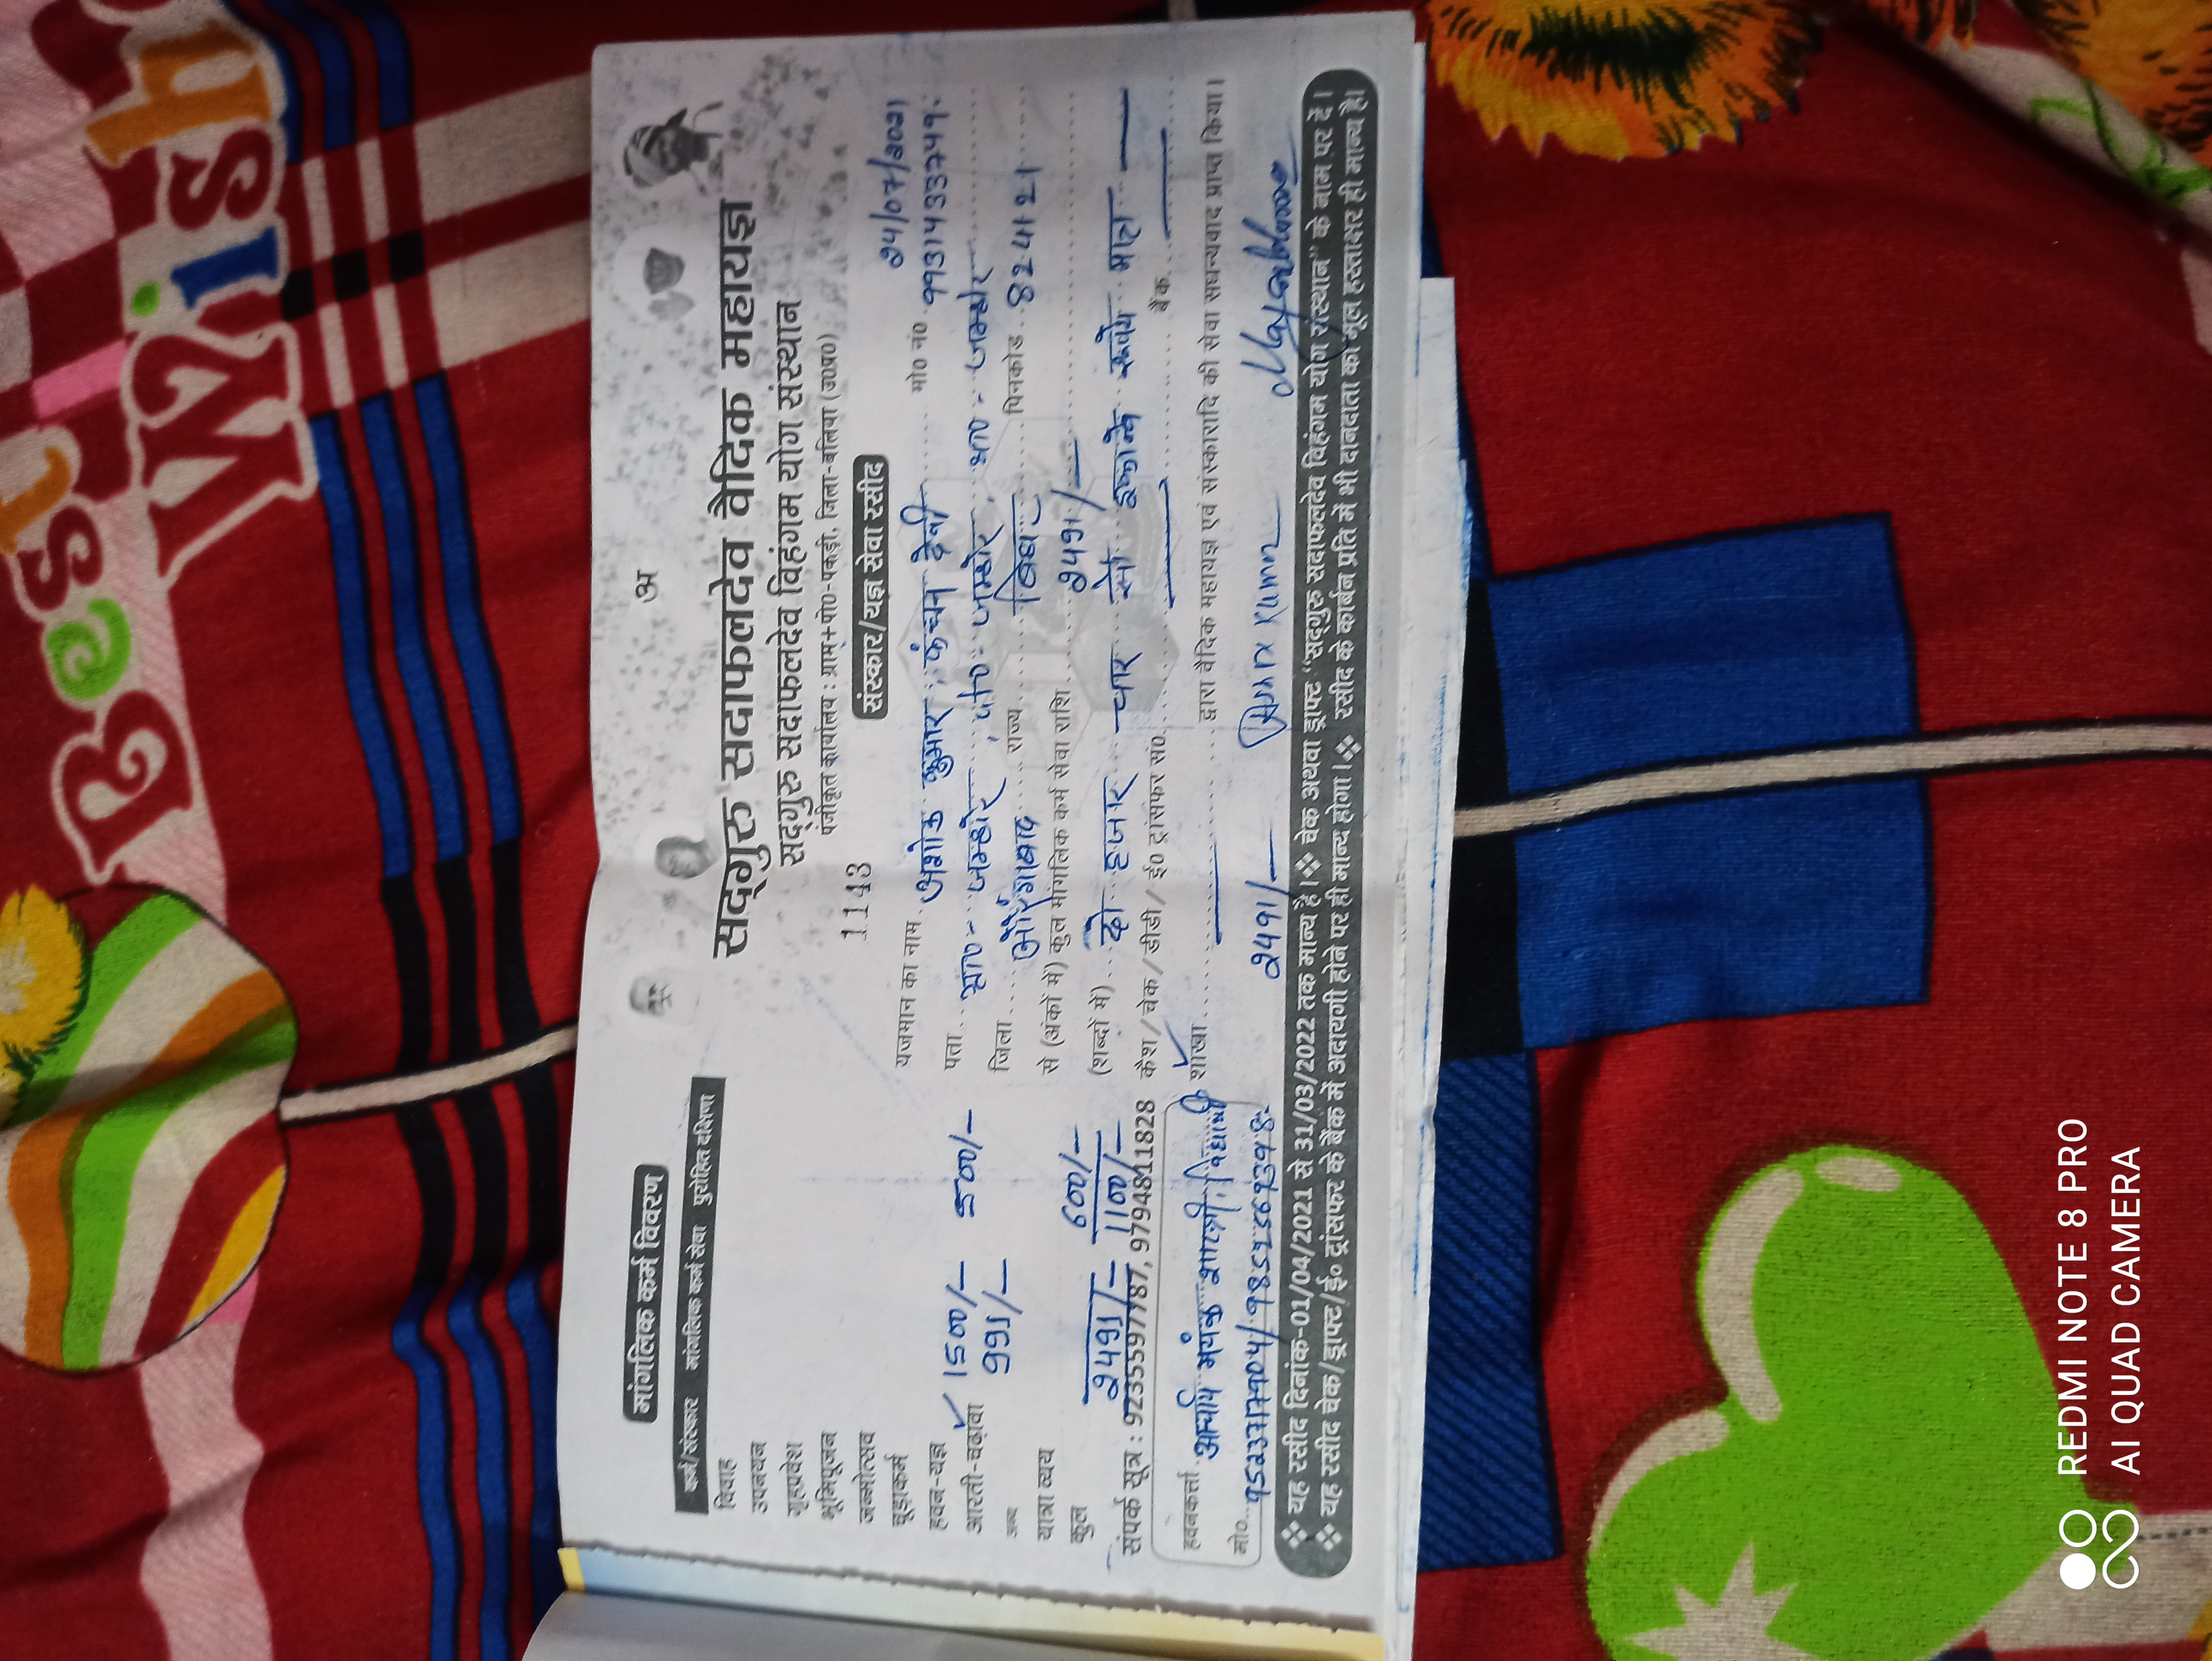 Best Wish
अ
मांगलिक कर्म विवरण
कर्म/संस्कार मांगलिक कर्म सेवा पुरोहित दक्षिणा
विवाह
उपनयन
गृहप्रवेश
भूमिपूजन
जन्मोत्सव
चूड़ाकर्म
हवन-यज्ञ 1500/- 500/-
आरती-चढ़ावा 991/-
अन्य
यात्रा व्यय 600/-
कुल 2491/- 1100/-
संपर्क सूत्र : 9235597787, 9794811828
हवनकर्ता आचार्य मयंक
मो०
सद्गुरु सदाफलदेव वैदिक महायज्ञ
सद्गुरु सदाफलदेव विहंगम योग संस्थान
पंजीकृत कार्यालय : ग्राम+पो०-पकड़ी, जिला-बलिया (उ०प्र०)
1143 संस्कार/यज्ञ सेवा रसीद
यजमान का नाम अशोक कुमार कंचन देवी मो० नं०
पता ग्रा० - जम्होर, पो० - जम्होर, था० - जम्होर
जिला औरंगाबाद राज्य बिहार पिनकोड 824121
से (अंकों में) कुल मांगलिक कर्म सेवा राशि 2491/-
(शब्दों में) दो हजार चार सौ इक्कानवे रूपये मात्र
कैश/चेक/डीडी/ई० ट्रांसफर सं० बैंक
शाखा द्वारा वैदिक महायज्ञ एवं संस्कारादि की सेवा सधन्यवाद प्राप्त किया।
2491/- Kumar
❖ यह रसीद दिनांक-01/04/2021 से 31/03/2022 तक मान्य है।❖ चेक अथवा ड्राफ्ट "सद्गुरु सदाफलदेव विहंगम योग संस्थान" के नाम पर दें।
❖ यह रसीद चेक/ड्राफ्ट/ई० ट्रांसफर के बैंक में अदायगी होने पर ही मान्य होगा।❖ रसीद के कार्बन प्रति में भी दानदाता का मूल हस्ताक्षर ही मान्य है।
REDMI NOTE 8 PRO
AI QUAD CAMERA